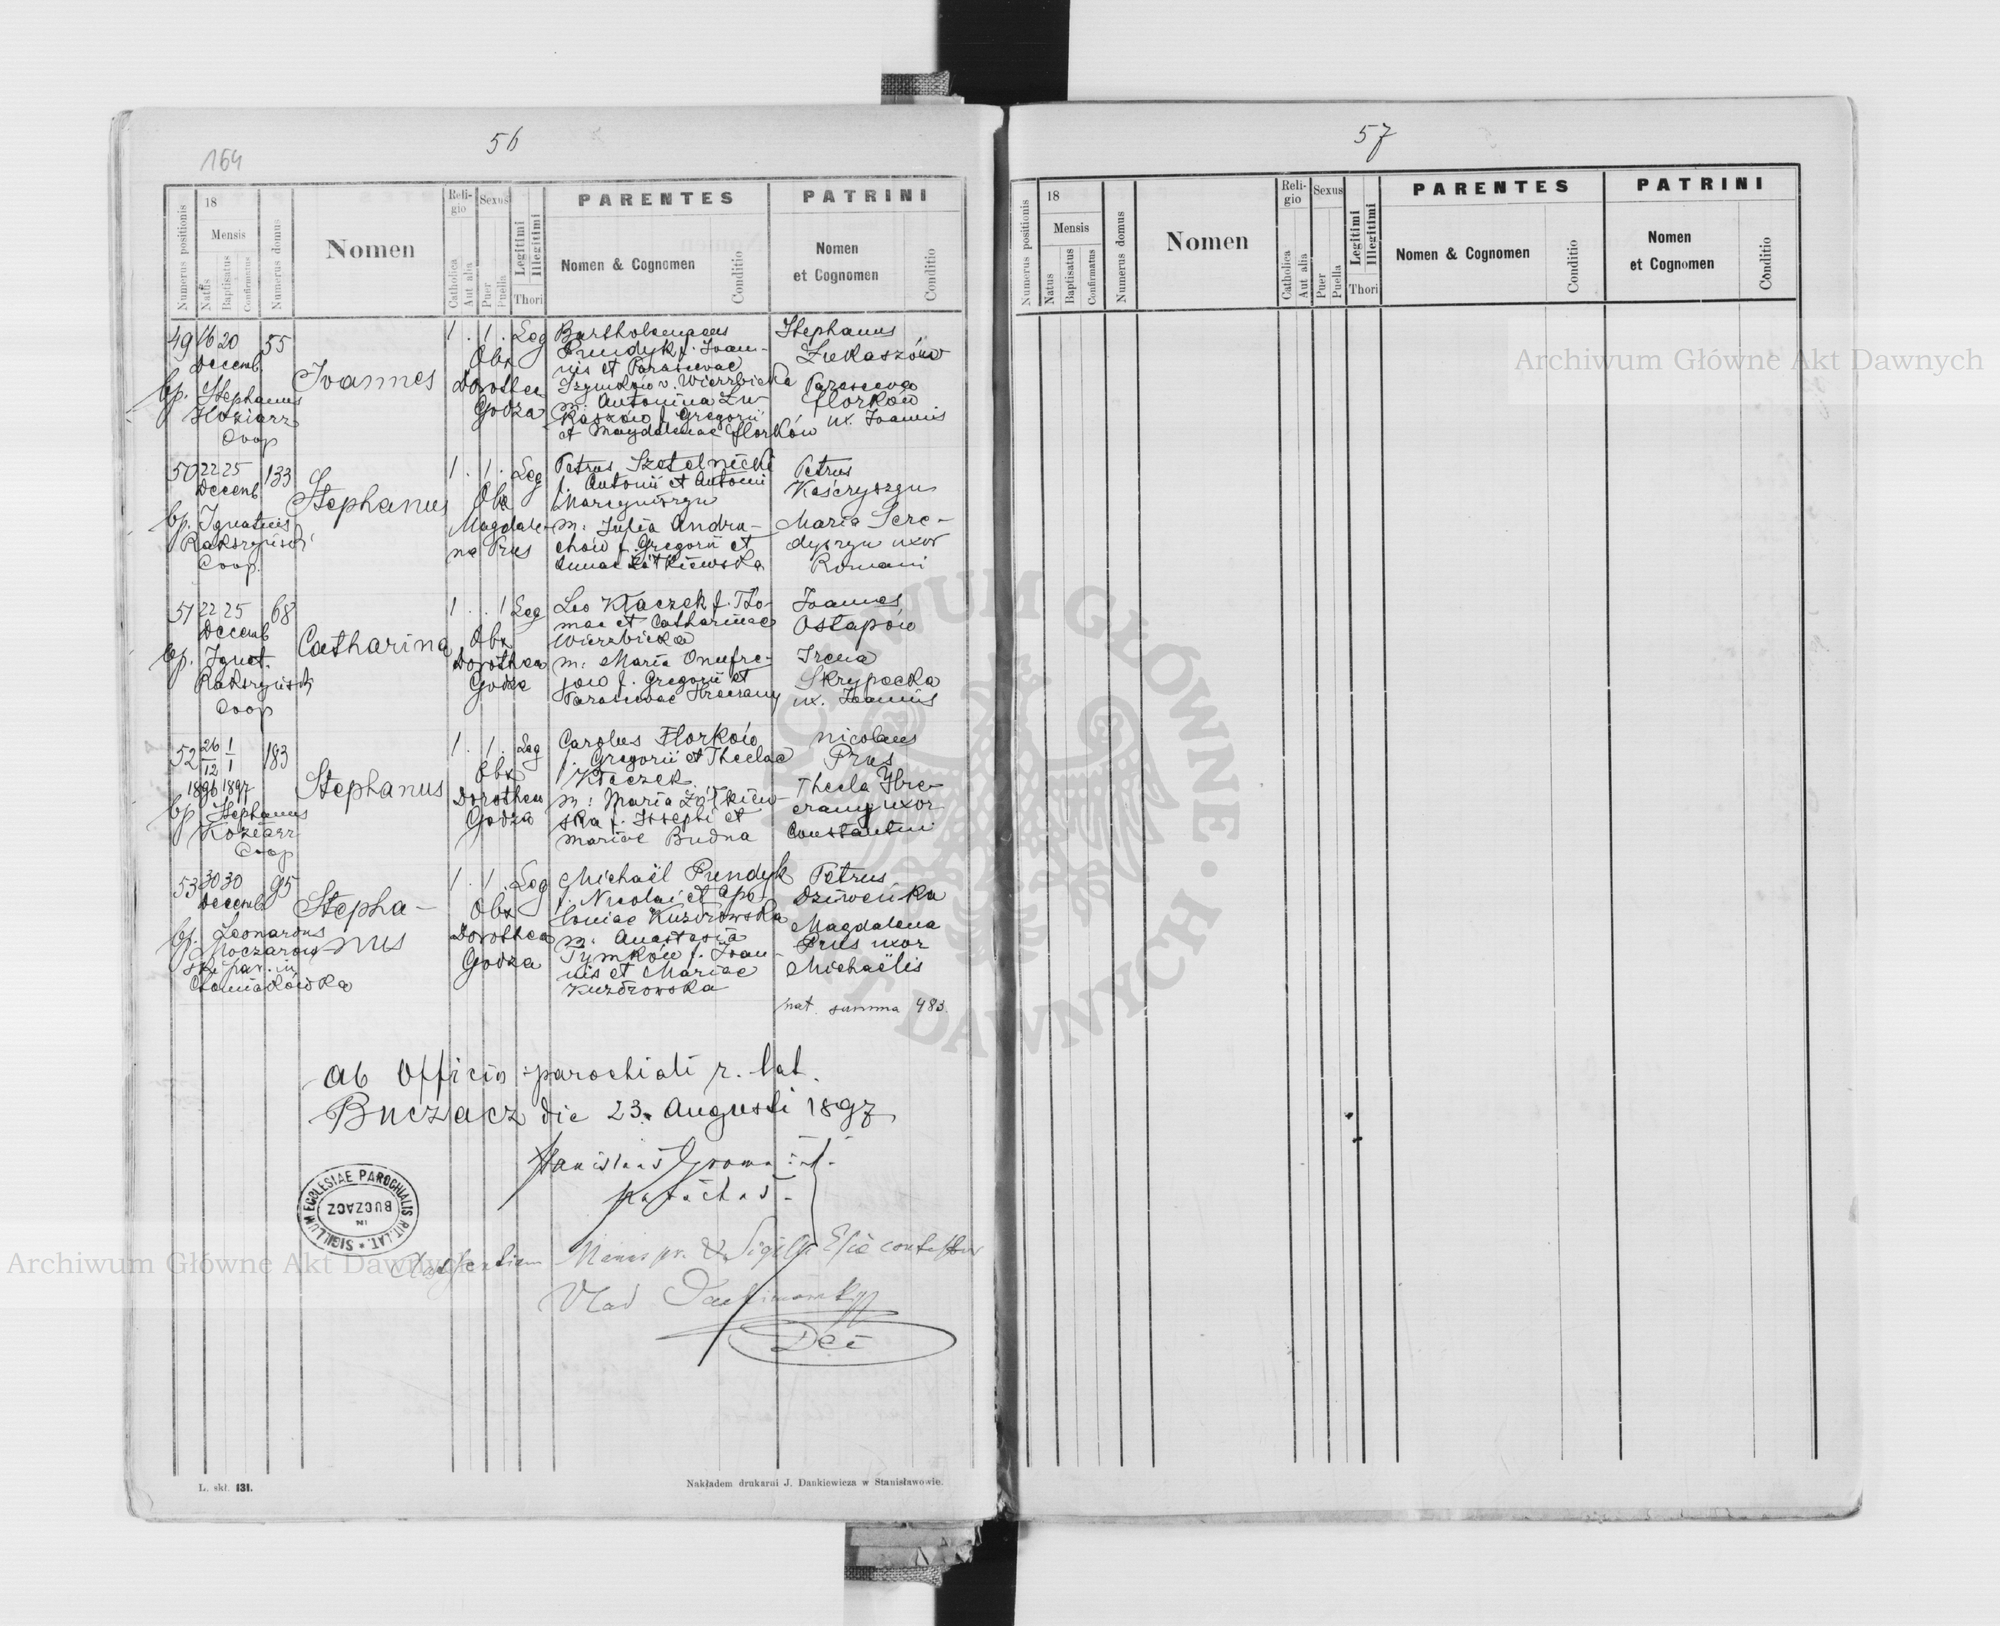 164
56
Numerus positionis
18
Mensis
Natus
Baptisatus
Confirmatus
Numerus domus
Nomen
Reli-
gio
Catholica
Aut alia
Sexus
Puer
Puella
Legitimi
Illegitimi
Thori
PARENTES
Nomen & Cognomen
Conditio
PATRINI
Nomen
et Cognomen
Conditio
49 16 20 55
Decemb.
bp. Stephanus
Koziarz
Coop
Joannes
1 . 1 . Leg
Obx
Dorothea
Godza
Bartholomaeus
Prundyk f. Joan-
nis et Parascevae
v. Wierzbicka
m. Antonina Łu-
kaszów f. Gregorii
et Magdalenae Florków
Stephanus
Łukaszów
Parasceva
Florków
ux. Joannis
50 22 25 133
Decemb
bp. Ignatius
Coop.
Stephanus
1 . 1 . Leg
Obx
Magdale-
na Prus
Petrus
f. Antonii et
Marcyniszyn
m: Julia Andru-
chów f. Gregorii et
Annae
Petrus
Kaściyszyn
Maria Sere-
dyszyn uxor
Romani
51 22 25 68
Decemb
bp. Ignat.
Coop
Catharina
1 . . 1 Leg
Obx
Dorothea
Godza
Leo Kłaczek f. Tho-
mae et Catharinae
Wierzbicka
m: Maria Onufre-
jow f. Gregorii et
Parascevae Hreczany
Joannes
Ostapów
Irena
Skrypocka
ux. Joannis
52 26/12 1/1 183
1896 1897
bp Stephanus
Koziarz
Coop
Stephanus
1 . 1 . Leg
Obx
Dorothea
Godza
Carolus Florków
f. Gregorii et Theclae
Kłaczek
m: Maria Żółkiew-
ska f. Josephi et
Mariae Budna
Nicolaus
Prus
Thecla Hre-
czany uxor
Constantini
53 30 30 95
Decemb
bp. Leonardus
Moczarow
ski par. in
Chomiakówka
Stepha-
nus
1 . 1 . Leg
Obx
Dorothea
Godza
Michaël Prundyk
f. Nicolai et Apo-
loniae Kuzdrowska
m. Anastasia
Tymków f. Joan-
nis et Mariae
Kuzdrowska
Petrus
Dziweńka
Magdalena
Prus uxor
Michaëlis
nat. summa 983.
Ab Officio parochiali r. lat.
Buczacz die 23. Augusti 1897
Stanislaus Gromnicki
parochus
SIGILLUM ECCLESIAE PAROCHIALIS RIT. LAT.
IN
BUCZACZ
Vlad
Dec
L. skł. 131.
Nakładem drukarni J. Dankiewicza w Stanisławowie.
57
Numerus positionis
18
Mensis
Natus
Baptisatus
Confirmatus
Numerus domus
Nomen
Reli-
gio
Catholica
Aut alia
Sexus
Puer
Puella
Legitimi
Illegitimi
Thori
PARENTES
Nomen & Cognomen
Conditio
PATRINI
Nomen
et Cognomen
Conditio
Archiwum Główne Akt Dawnych
Archiwum Główne Akt Dawnych
ARCHIWUM GŁÓWNE · AKT DAWNYCH ·